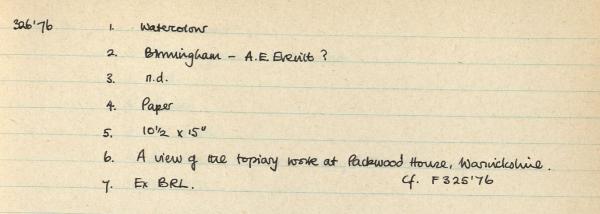 326'76 1. Watercolour
2. Birmingham - A.E. Everitt ?
3. n.d.
4. Paper
5. 10½ x 15"
6. A view of the topiary work at Packwood House, Warwickshire.
7. Ex BRL. Cf. F325'76